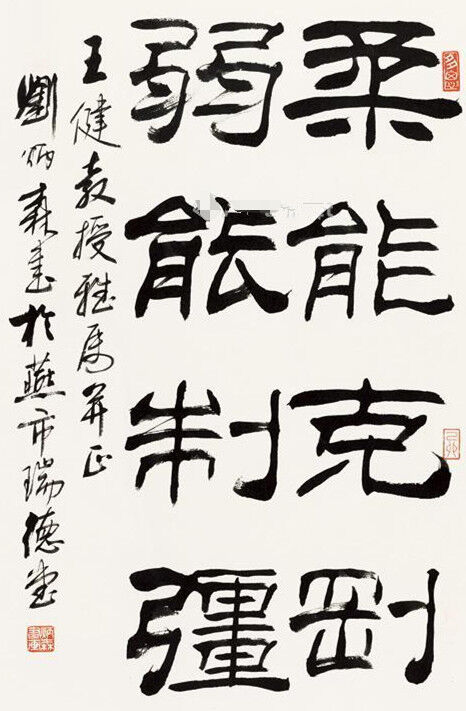 柔能克刚
弱能制彊
王健教授雅属并正
劉炳森書於燕市瑞德堂